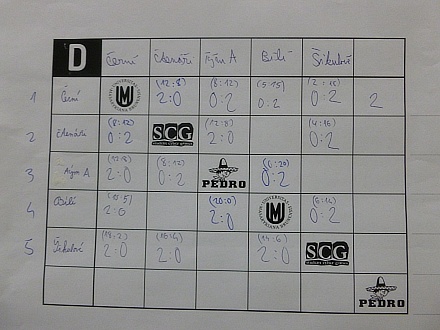 D Černí Čtenáři Tým A Bílí Šikulové
1 Černí UNIVERSITAS MASARYKIANA BRUNENSIS MU (12:8) 2:0 (8:12) 0:2 (5:15) 0:2 0:2 2
2 Čtenáři (8:12) 0:2 SCG (12:8) 2:0 (4:16) 0:2
3 Tým A 2:0 (8:12) 0:2 PEDRO (0:20) 0:2
4 Bílí (15:5) 2:0 (20:0) 2:0 MU (6:14) 0:2
5 Šikulové 2:0 (16:4) 2:0 (14:6) 2:0 SCG
PEDRO